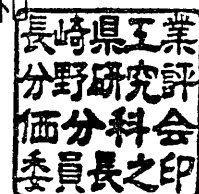 長崎県工業
分野研究評
価分科会
委員長之印